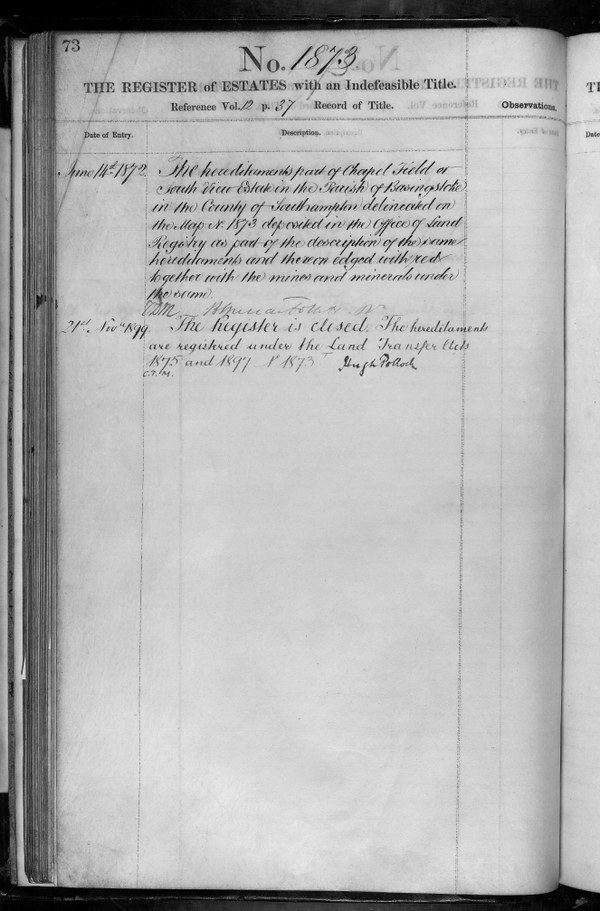 73
No. 1873
THE REGISTER of ESTATES with an Indefeasible Title.
Reference Vol. 12 p. 37 Record of Title.
Observations.
Date of Entry.
Description.
June 14th 1872 The hereditaments part of Chapel Field or
South View Estate in the Parish of Basingstoke
in the County of Southampton delineated on
the Map No. 1873 deposited in the Office of Land
Registry as part of the description of the same
hereditaments and thereon edged with red
together with the mines and minerals under
the same.
21st Novr 1899. The Register is closed. The hereditaments
are registered under the Land Transfer Acts
1875 and 1897 No 1873
Hugh Pollock
C.T.M.
Date